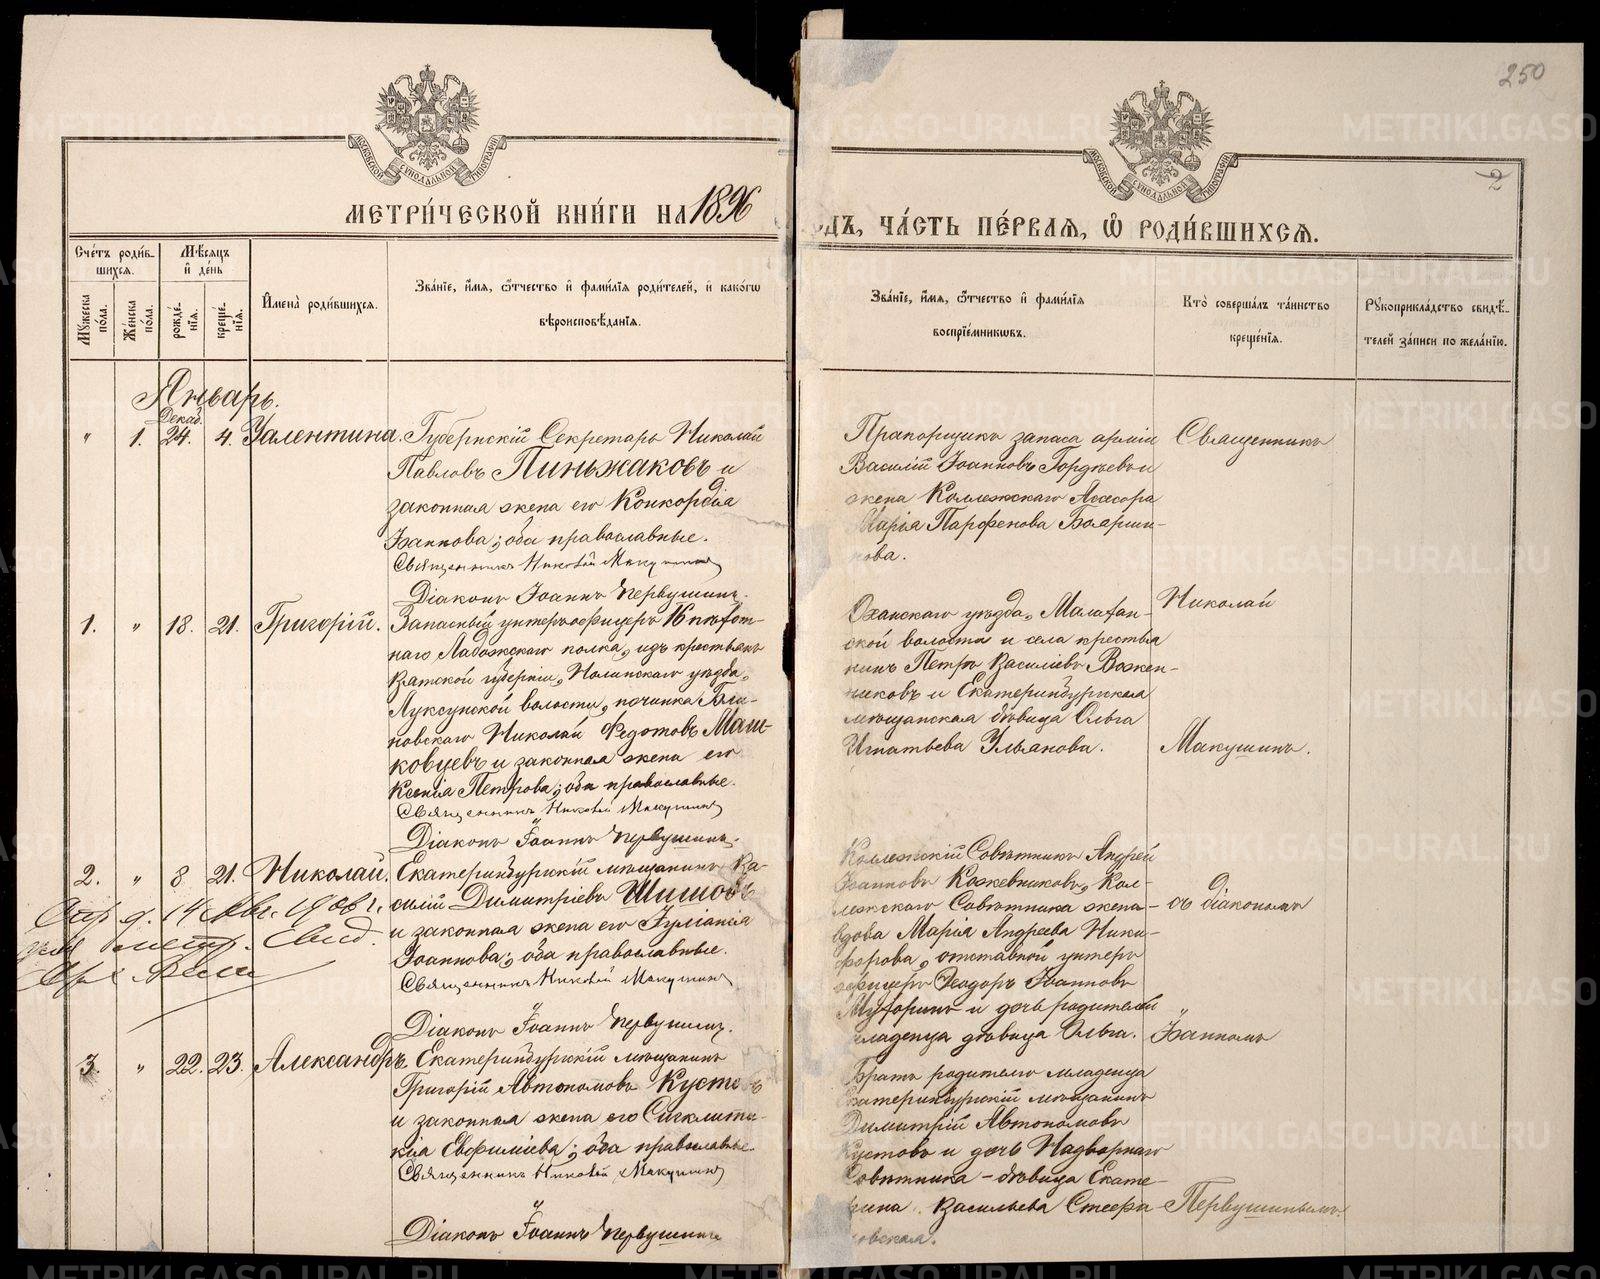 250
2
МОСКОВСКОЙ СѴНОДАЛЬНОЙ ТИПОГРАФІИ
МЕТРИ́ЧЕСКОЙ КНИ́ГИ НА 1896
ДЪ, ЧА́СТЬ ПЕ́РВАЯ, Ѡ РОДИ́ВШИХСЯ.
Сче́тъ роди́в-
шихся.
Мѣ́сяцъ
и де́нь
Му́жеска
по́ла.
Же́нска
по́ла.
рожде́-
нія.
креще́-
нія.
Имена̀ роди́вшихся.
Зва́ніе, и́мя, ѻ́тчество и фами́лія роди́телей, и како́гѡ
вѣроисповѣ́данія.
Зва́ніе, и́мя, ѻ́тчество и фами́лія
воспріе́мникѡвъ.
Кто̀ соверша́лъ та́инство
креще́нія.
Рукоприкла́дство свидѣ́-
телей за́писи по жела́нію.
Январь.
Декаб.
" 1. 24. 4. Валентина.
Губернскій Секретарь Николай
Павловъ Пиньжаковъ и
законная жена его Конкордія
Іоаннова; оба православные.
Священникъ Николай Макушинъ
Діаконъ Іоаннъ Первушинъ.
Прапорщикъ запаса арміи
Василій Іоанновъ Гордѣевъ и
жена Коллежскаго Ассесора
Марія Парфенова Бояршин-
нова.
Священникъ
1. " 18. 21. Григорій.
Запасный унтеръ-офицеръ 16 пѣхот-
наго Ладожскаго полка, изъ крестьянъ
Вятской губерніи, Нолинскаго уѣзда,
волости, починка
Николай Федотовъ Маш-
ковцевъ и законная жена его
Ксенія Петрова; оба православные.
Священникъ Николай Макушинъ
Діаконъ Іоаннъ Первушинъ.
Оханскаго уѣзда,
ской волости и села крестья
нинъ Петръ Василіевъ Вожен-
никовъ и Екатеринбургская
мѣщанская дѣвица Ольга
Игнатьева Ульянова.
Николай
Макушинъ.
2. " 8 21. Николай.
14 Авг. 1906 г.
метр. Свид.
Екатеринбургскій мѣщанинъ Ва-
силій Димитріевъ Шишовъ
и законная жена его Іуліанія
Іоаннова; оба православные.
Священникъ Николай Макушинъ
Діаконъ Іоаннъ Первушинъ.
Коллежскій Совѣтникъ Андрей
Іоанновъ Кожевниковъ, Кол-
лежскаго Совѣтника жена-
вдова Марія Андреева Ники-
форова, отставной унтеръ
офицеръ Ѳеодоръ Іоанновъ
и дочь родителей
младенца дѣвица Ольга.
съ діакономъ
Іоанномъ
3. " 22. 23. Александръ.
Екатеринбургскій мѣщанинъ
Григорій Автономовъ Кустовъ
и законная жена его Сигклити-
кія Евфиміева; оба православные.
Священникъ Николай Макушинъ
Діаконъ Іоаннъ Первушинъ
Братъ родителю младенца
Екатеринбургскій мѣщанинъ
Димитрій Автономовъ
Кустовъ и дочь Надворнаго
Совѣтника - дѣвица Екате-
рина Васильева Стефа-
новская.
Первушинымъ.
METRIKI.GASO-URAL.RU